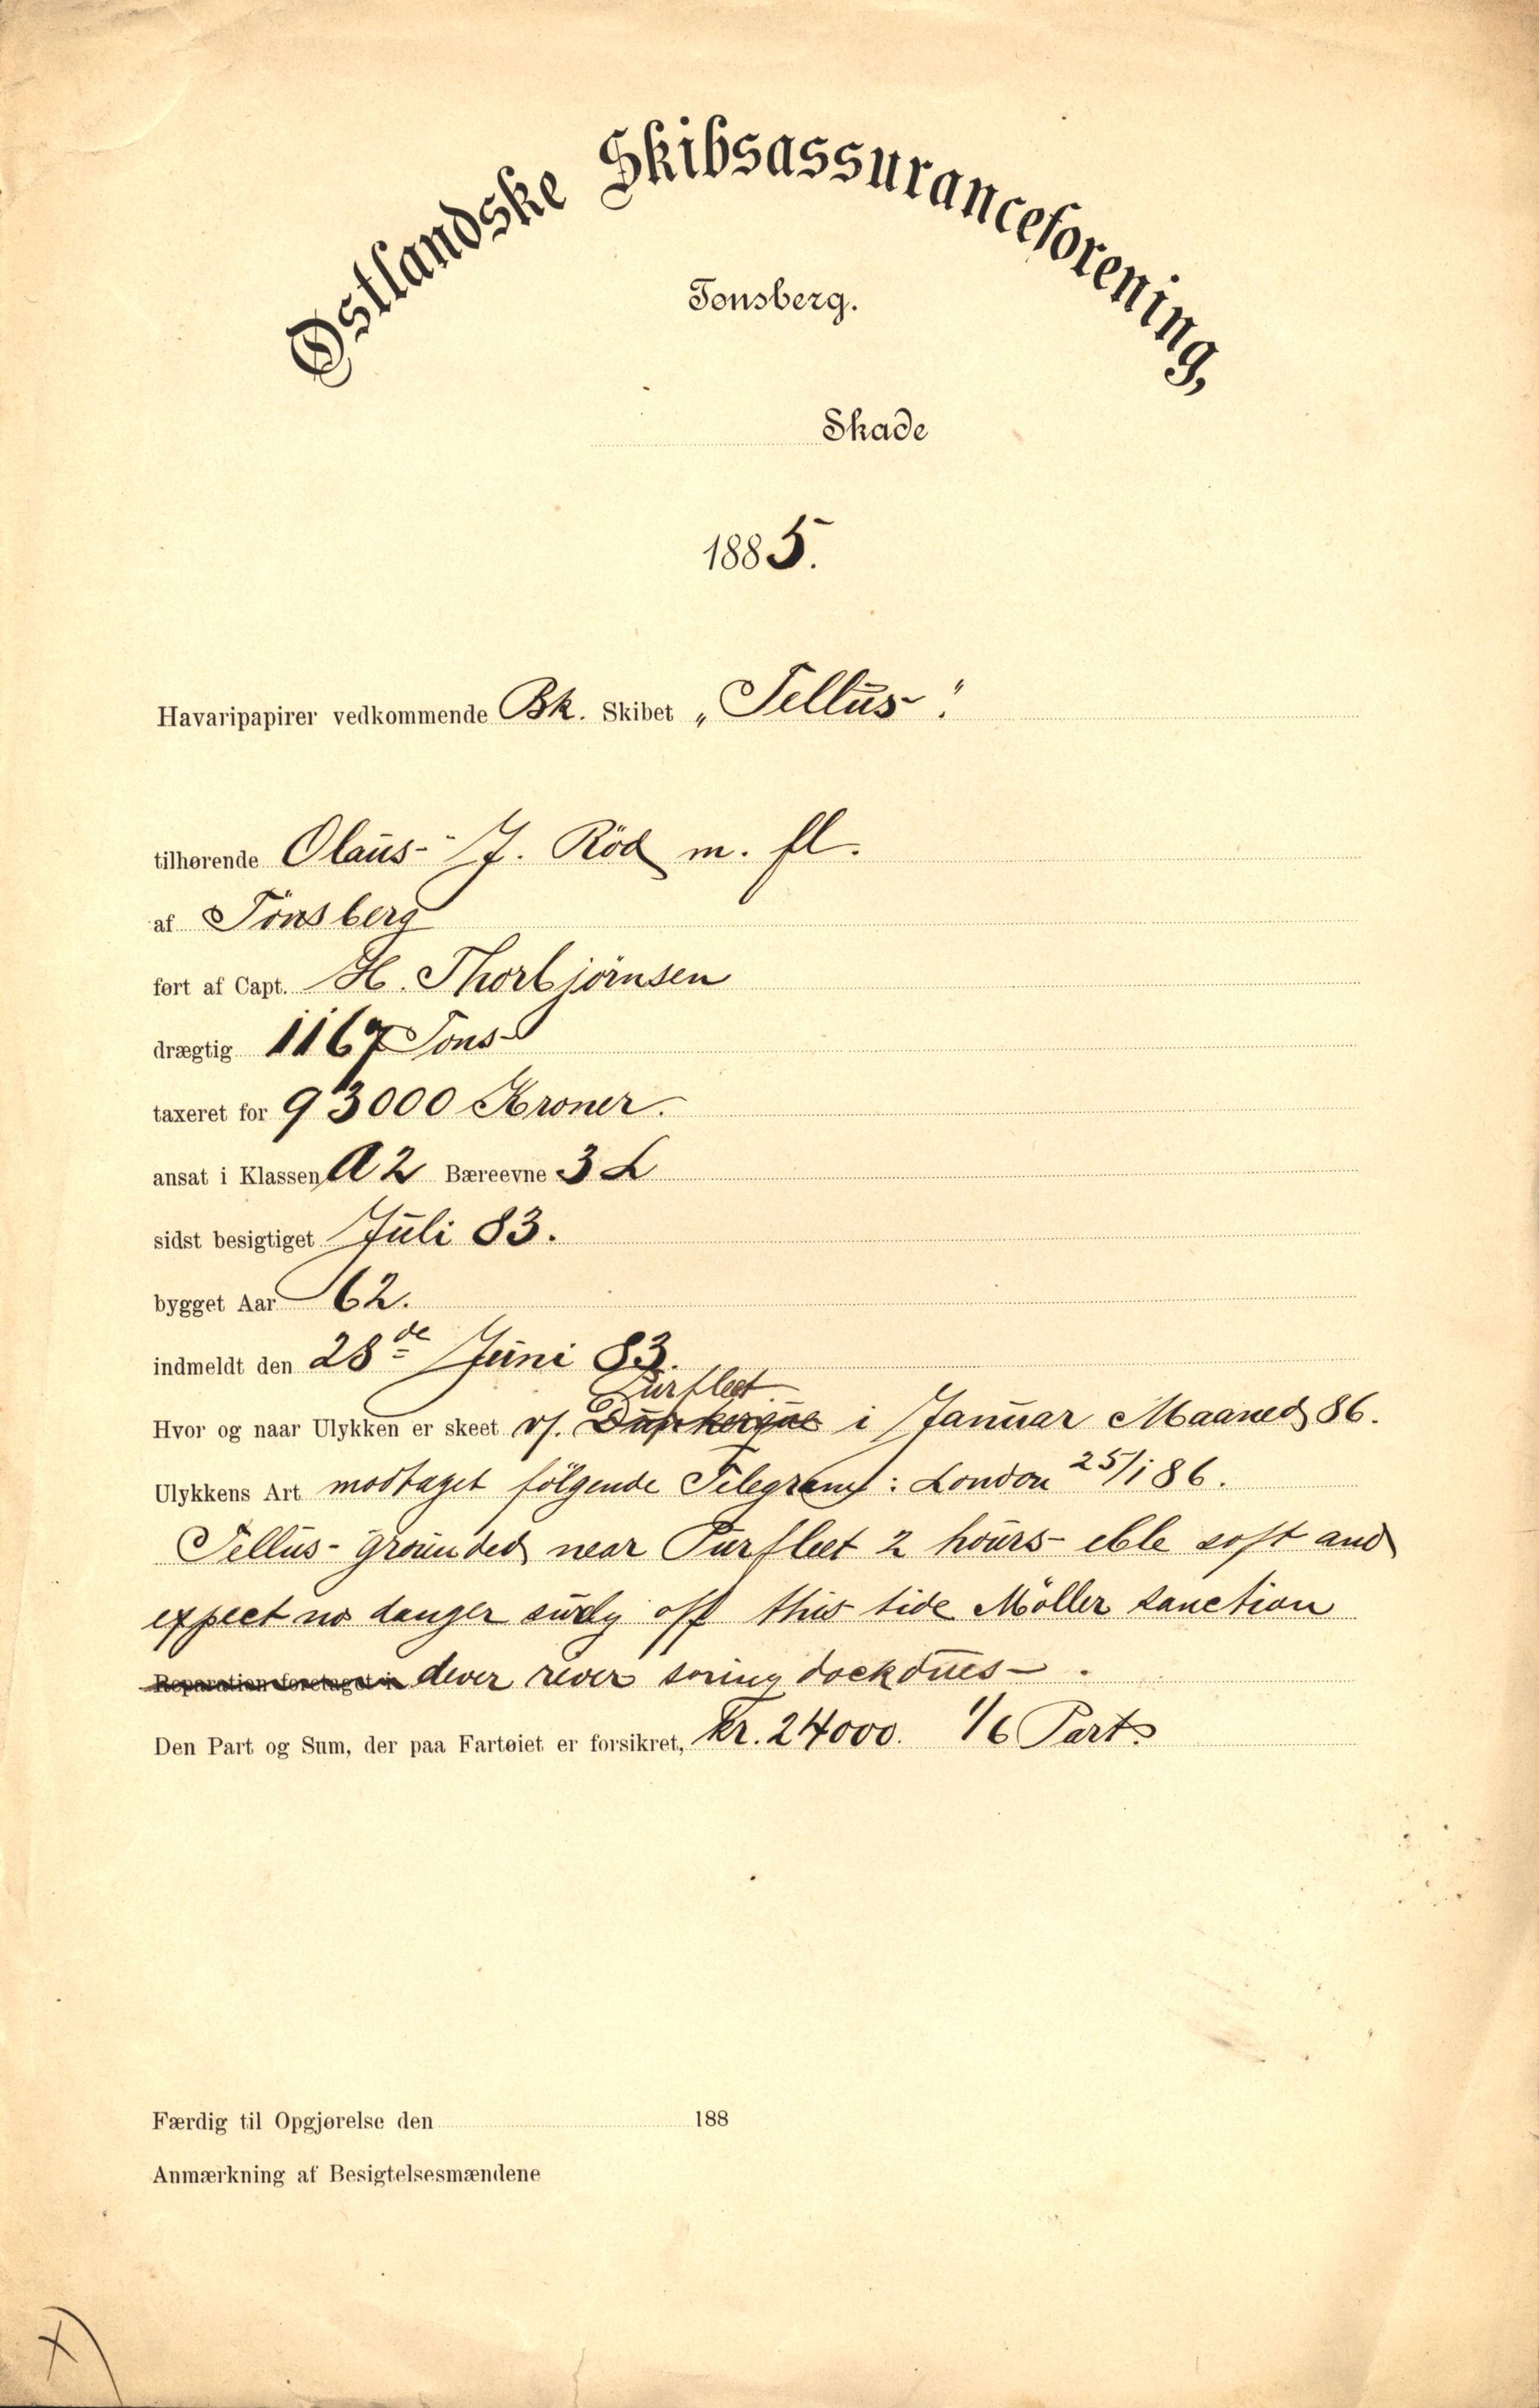 Østlandske Skibsassuranceforening,
Tønsberg.
Skade
1885.
Havaripapirer vedkommende Bk. Skibet „Tellus".
tilhørende Olaus J. Röd m. fl.
af Tönsberg
ført af Capt. H. Thorbjörnsen
drægtig 1167 Tons
taxeret for 93000 Kroner.
ansat i Klassen A2 Bæreevne 3 L
sidst besigtiget Juli 83.
bygget Aar 62.
indmeldt den 28de Juni 83.
Purfleet
Hvor og naar Ulykken er skeet v/. Dünkerque i Januar Maaned 86.
Ulykkens Art modtaget fölgende Telegram: London 25/1 86.
Tellus grounded near Purfleet 2 hours ebb soft and
expect no danger off this tide Möller sanction
Reparation foretaget i river dockdues.
Den Part og Sum, der paa Fartøiet er forsikret, Kr. 24000. 1/6 Part.
Færdig til Opgjørelse den 188
Anmærkning af Besigtelsesmændene